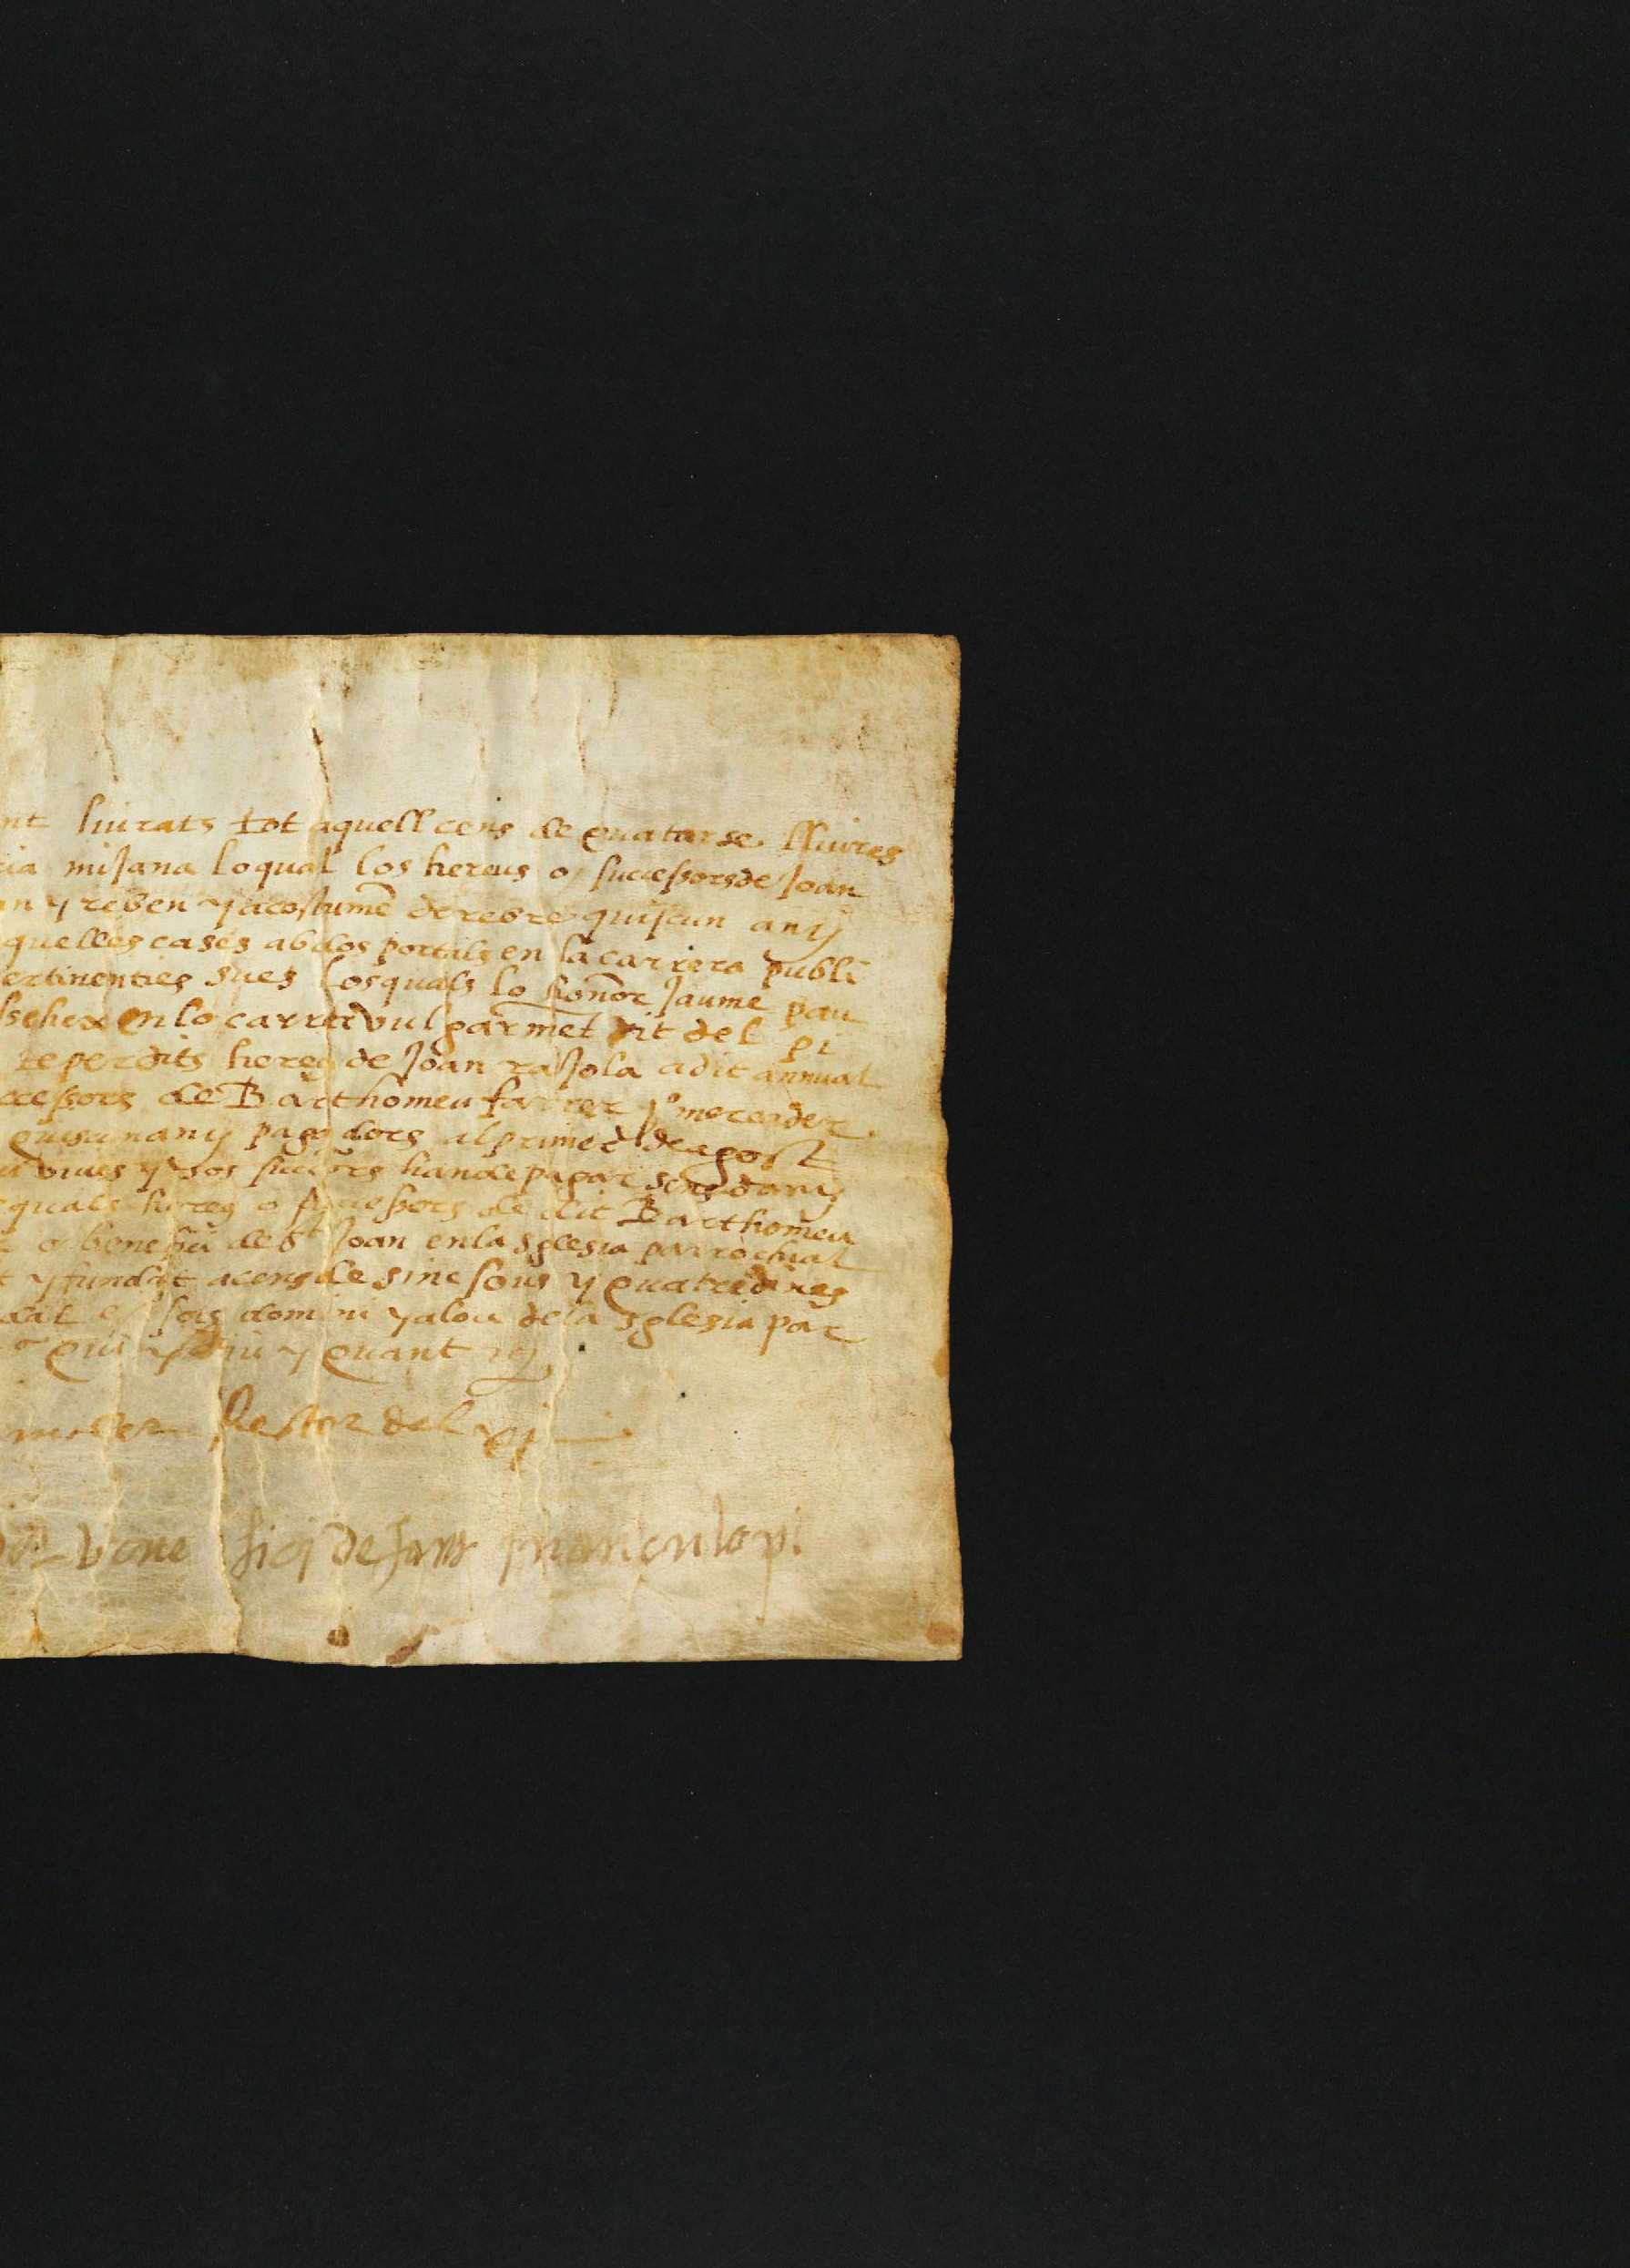 nt liurats tot aquell cens de quatorse lliures
ia mijana lo qual los hereus o successors de Joan
n y reben y acostumē de rebre quiscun any
quelles cases ab dos portals en la carrera publi
ertinenties sues los quals lo honor Jaume pau
en lo carrer vulgarmēt dit del pi
te per dits hereus de Joan rajola a dit annual
ccessors de Barthomeu farrer q° mercader
quiscun any pagadors al primer de agost
viues y sos han de pagar sens dany
quals hereus o successors de dit Barthomeu
o benefici de St Joan en la sglesia parrochial
t y fundat a cens de sinc sous y quatre diners
dat sots domini y alou de la sglesia par
qui y diu y quant
Rector del pi
bene fici de sant